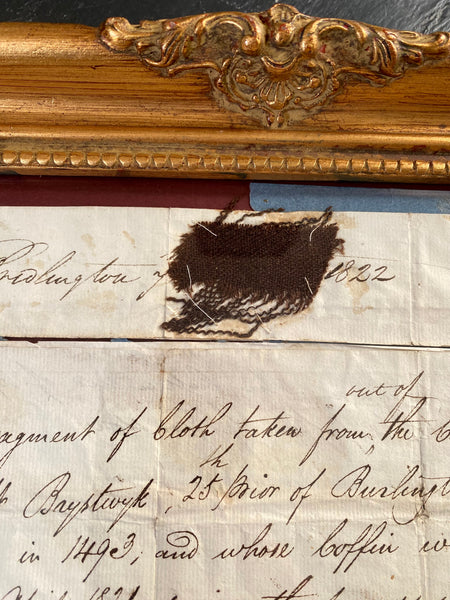 Bridlington 1822
out of
agment of Cloth taken from the C
Brystwyk, 25th Prior of Burlingt
in 1493, and whose Coffin w